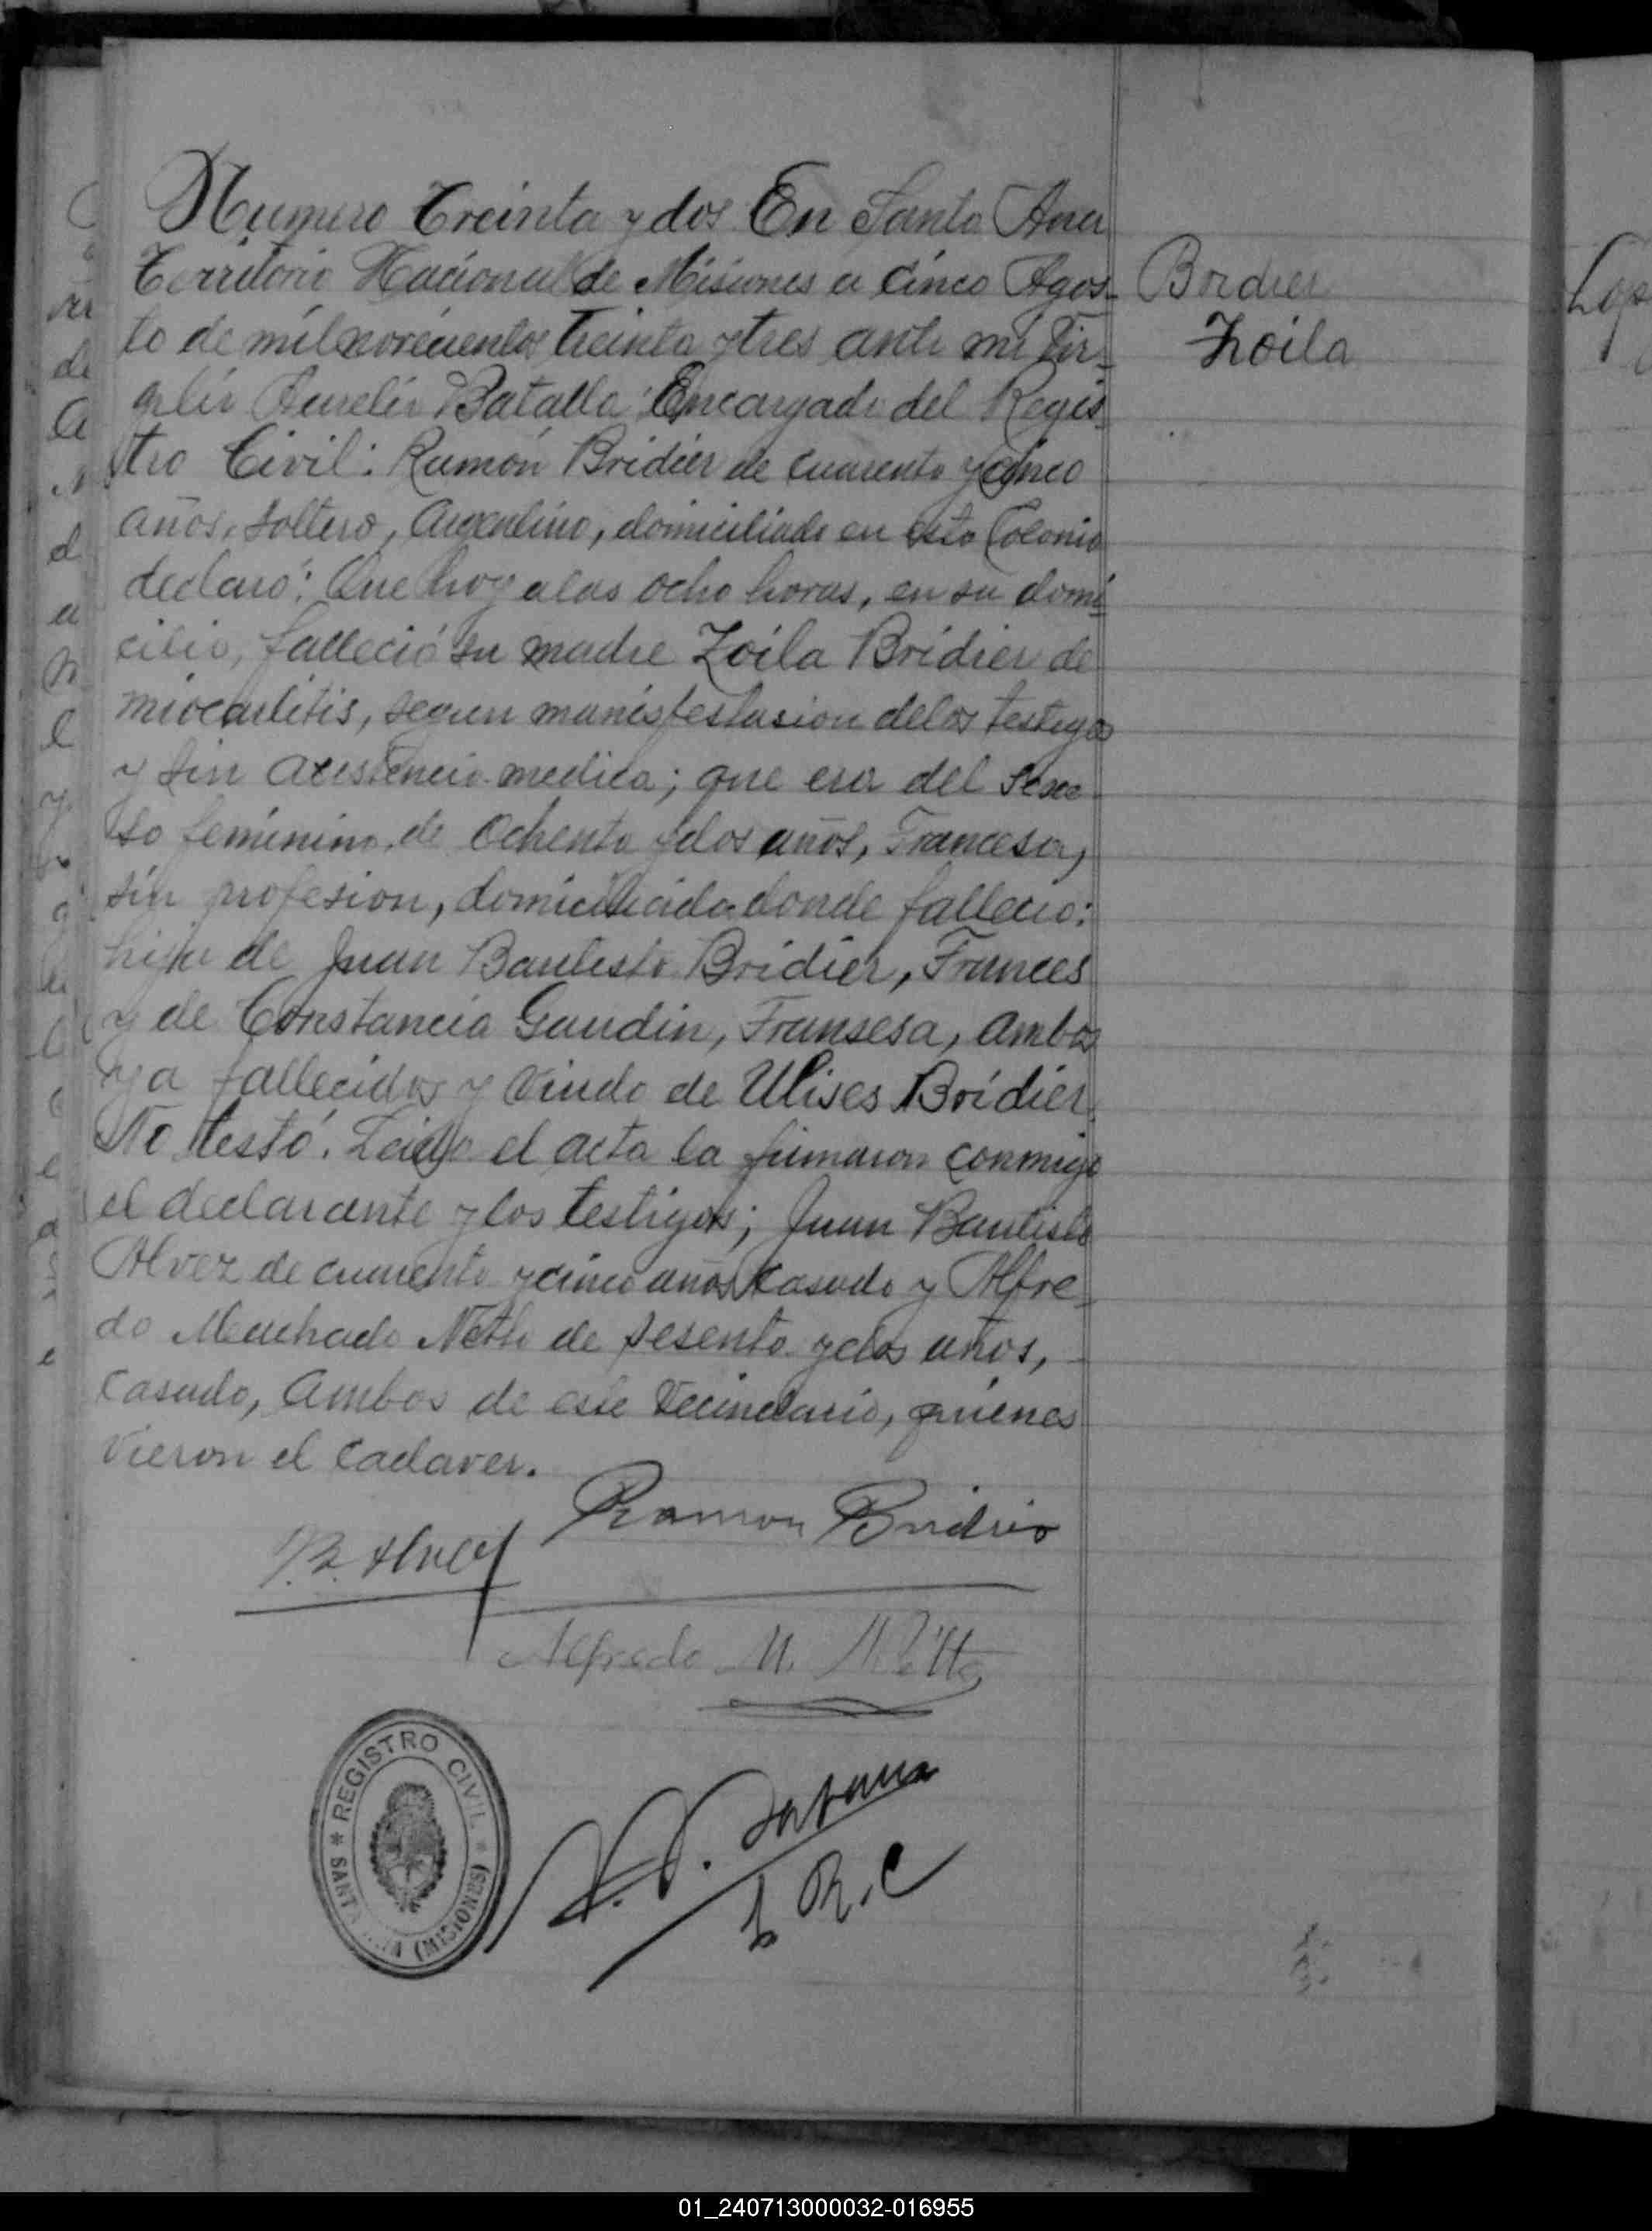 Numero Treinta y dos En Santa Ana
Territorio Nacional de Misiones a cinco Agos-
to de mil novecientos treinta y tres ante mi Vir-
gilio Aurelio Batalla Encargado del Regis-
tro Civil: Ramón Bridier de cuarenta y cinco
años, soltero, Argentino, domiciliado en esta Colonia
declaró: Que hoy a las ocho horas, en su domi-
cilio, falleció su madre Zoila Bridier de
miocarditis, segun manisfestasion de los testigos
y sin asistencia medica; que era del sexo
femenino, de ochenta y dos años, Francesa,
sin profesion, domiciliada donde fallecio:
hija de Juan Bautista Bridier, Frances
y de Constancia Gaudin, Fransesa, ambos
ya fallecidos y Viuda de Ulises Bridier.
No testó. Leida el acta la firmaron conmigo
el declarante y los testigos; Juan Bautista
Alvez de cuarenta y cinco años casado y Alfre-
do Machado Netto de sesenta y dos años,
casado, ambos de este Vecindario, quienes
vieron el cadaver.
Bridier
Zoila
Ramon Bridier
J.B. Alvez
Alfredo M. Netto
E R.C
* REGISTRO CIVIL * SANTA ANA (MISIONES)
01_240713000032-016955